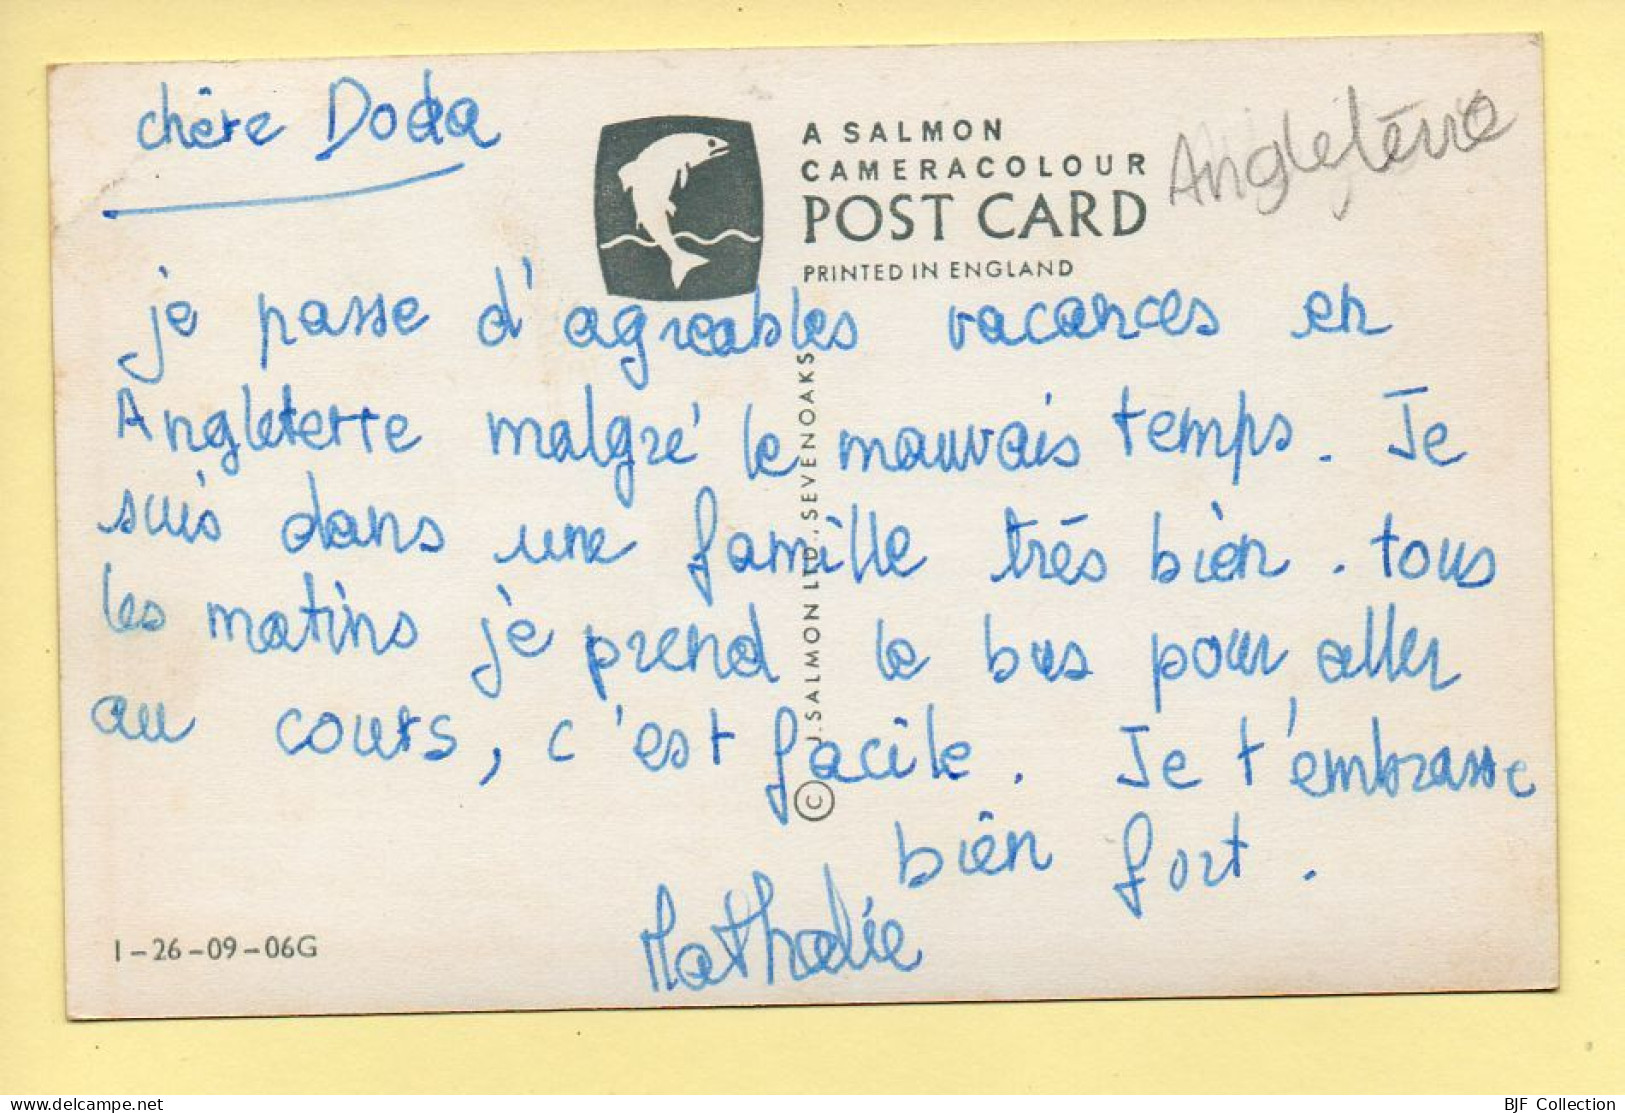 chère Doda
A SALMON
CAMERACOLOUR
POST CARD
PRINTED IN ENGLAND
Angleterre
je passe d'agreables vacances en
Angleterre malgré le mauvais temps. Je
suis dans une famille très bien. tous
les matins je prend le bus pour aller
au cours, c'est facile. Je t'embrasse
bien fort.
Nathalie
© J. SALMON LTD., SEVENOAKS
1-26-09-06G
BJF Collection